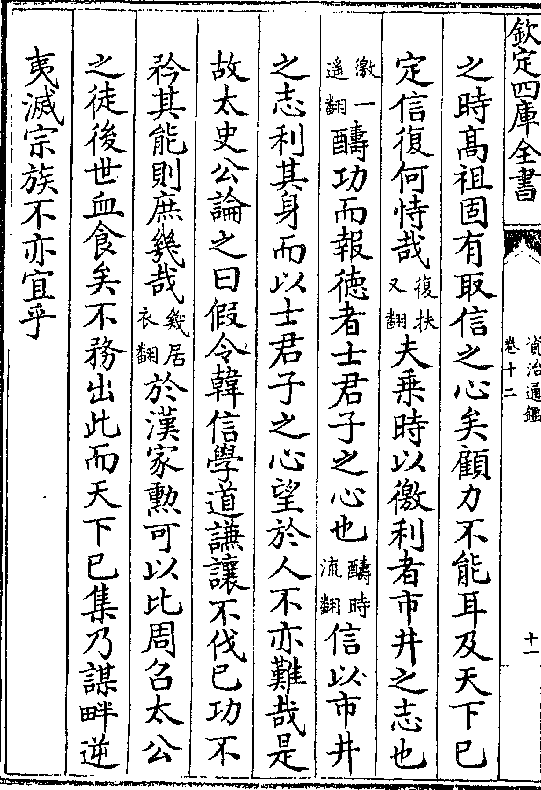 欽定四庫全書
資治通鑑
卷十二
十一
之時髙祖固有取信之心矣顧力不能耳及天下已
定信復何恃哉復扶又翻夫乗時以徼利者市井之志也
徼一遥翻醻功而報徳者士君子之心也醻時流翻信以市井
之志利其身而以士君子之心望於人不亦難哉是
故太史公論之曰假令韓信學道謙讓不伐已功不
矜其能則庶幾哉幾居衣翻於漢家勲可以比周召太公
之徒後世血食矣不務出此而天下已集乃謀畔逆
夷滅宗族不亦宜乎